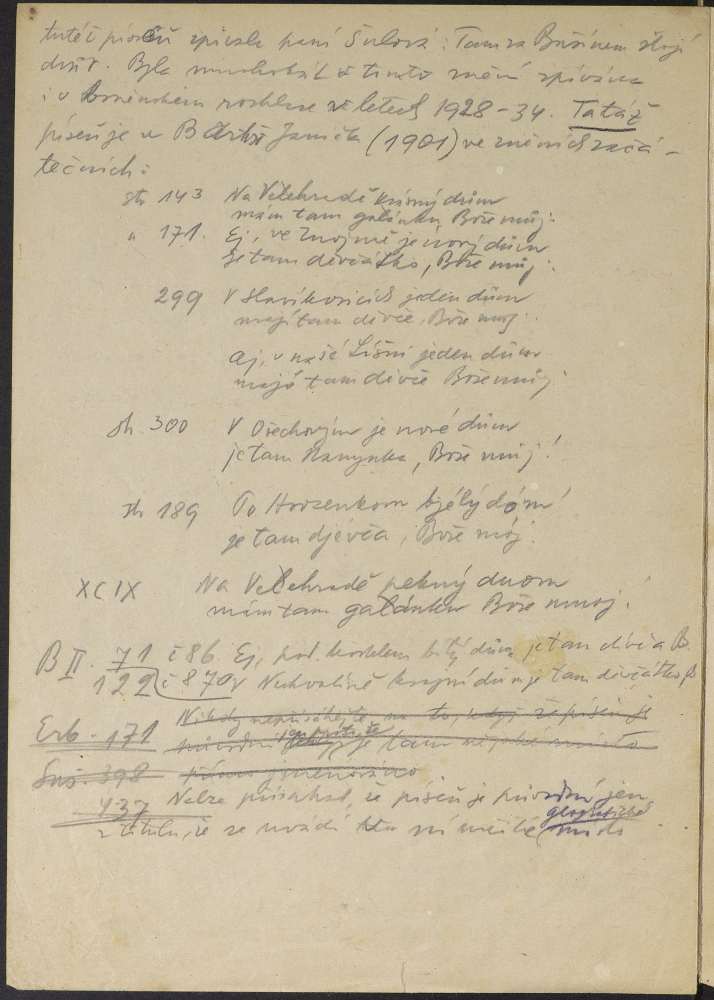 tutéž píseň zpívala paní Šulová: Tam za Bušínem stojí
dub. Byla mnohokrát v tomto znění zpívána
i v brněnském rozhlase v letech 1928-34. Tatáž
píseň je u Bartoše Janáčka (1901) ve zněních začá-
tečních:
str 143 Na Velehradě krásný dům
mám tam galánku, Bože můj.
" 171. Ej, ve Znojmě je nový dům
Je tam děvčátko, Bože můj.
299 V Slavíkovicích jeden dům
mají tam děvče, Bože můj.
Aj, v naší Líšni jeden dům
majó tam děvče Bože můj
str. 300 V Ořechovým je nové dům
je tam Nanynka, Bože můj!
str 189 Po Hrozenkom bjélý dóm
je tam djévča, Bože mój.
XCIX Na Velehradě pekný duom
mám tam galánku Bože muoj!
B II. 71 č 86. Ej, pod kostelem bílý dům, je tam děvča B.
122 č 870 V Nechvalíně krajní dům je tam děvčátko B
Erb. 171 na to, když, že píseň je
původní je tam
Suš. 398 jmenováno
437 Nelze přísahat, že píseň je původní jen
z titulu, že se uvádí geografické